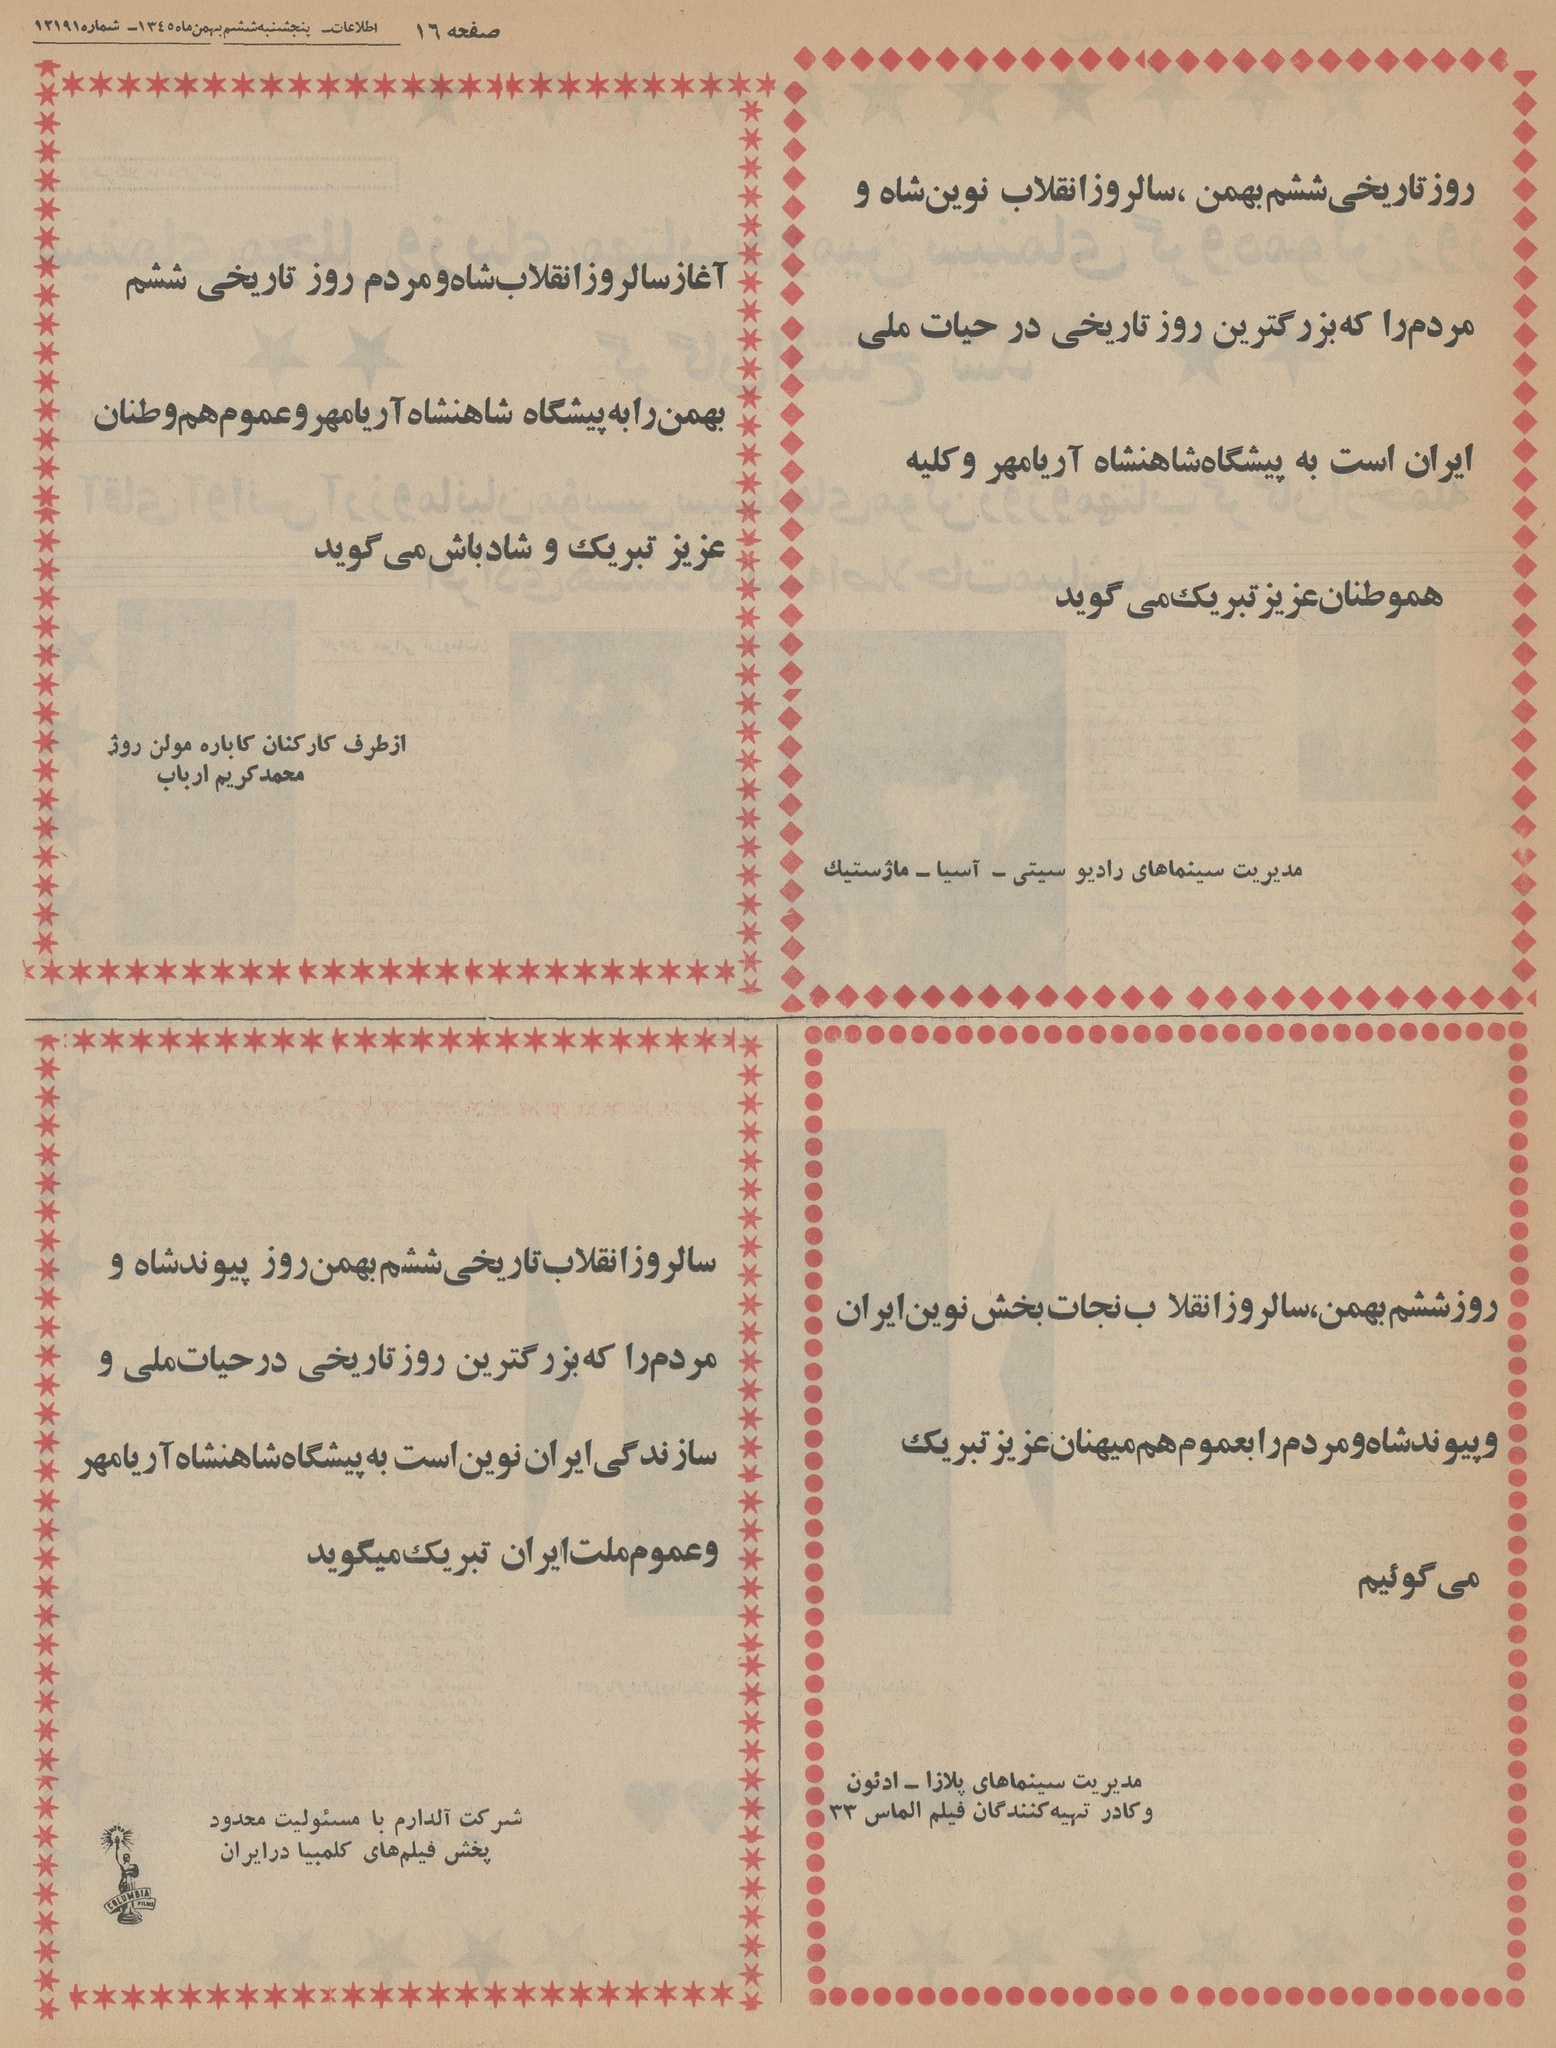 صفحه ١٦
اطلاعات ـ پنجشنبه ششم بهمن ماه ١٣٤٥ ـ شماره ١٢١٩١
روز تاریخی ششم بهمن ، سالروز انقلاب نوین شاه و
مردم را که بزرگترین روز تاریخی در حیات ملی
ایران است به پیشگاه شاهنشاه آریامهر و کلیه
هموطنان عزیز تبریک می گوید
مدیریت سینماهای رادیو سیتی ـ آسیا ـ ماژستیک
آغاز سالروز انقلاب شاه و مردم روز تاریخی ششم
بهمن را به پیشگاه شاهنشاه آریامهر و عموم هم وطنان
عزیز تبریک و شادباش می گوید
از طرف کارکنان کاباره مولن روژ
محمد کریم ارباب
روز ششم بهمن، سالروز انقلاب نجات بخش نوین ایران
و پیوند شاه و مردم را بعموم هم میهنان عزیز تبریک
می گوئیم
مدیریت سینماهای پلازا ـ ادئون
و کادر تهیه کنندگان فیلم الماس ٣٣
سالروز انقلاب تاریخی ششم بهمن روز پیوند شاه و
مردم را که بزرگترین روز تاریخی در حیات ملی و
سازندگی ایران نوین است به پیشگاه شاهنشاه آریامهر
و عموم ملت ایران تبریک میگوید
شرکت آلدارم با مسئولیت محدود
پخش فیلم‌های کلمبیا در ایران
COLUMBIA
FILMS